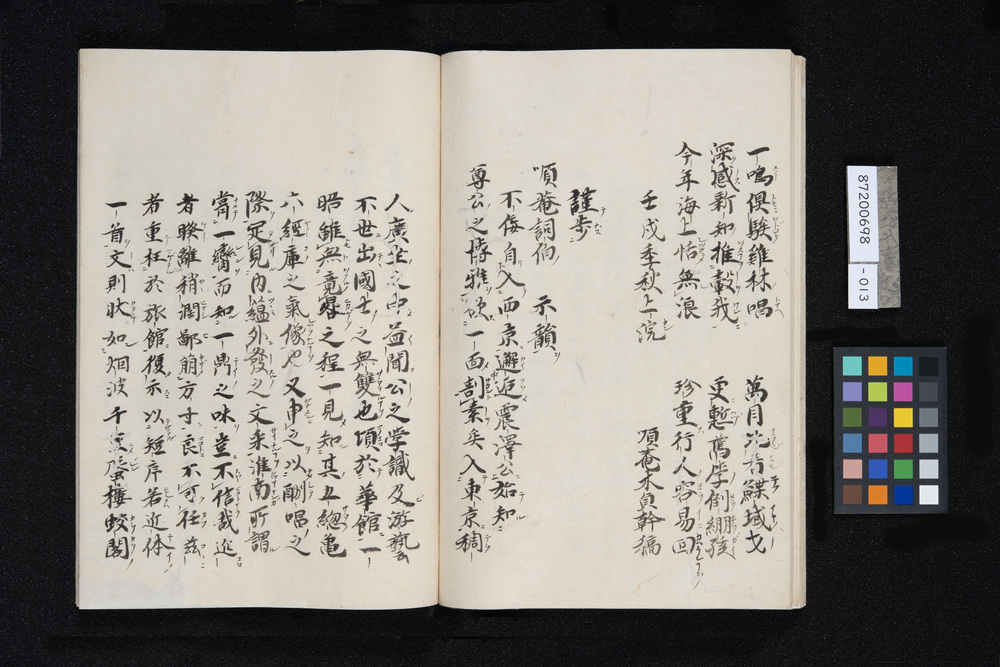 一鳴俱駭雞林唱 萬月光寄鰈域文
深感新知推轂我 更慙舊學倒繃孩
今年海上恬無浪 珍重行人容易回
壬戌季秋上浣 順菴木貞幹稿
謹步
順菴詞伯 示韻
不佞自入西京邂逅震澤公始知
尊公之博雅欤一面割素矣入東京稠
人廣坐之中益聞公之學識及游藝
不世出國士之無雙也頃於華館一
晤雖無竟晷之程一見知其五總亀
六經庫之氣像也又申之以酬唱之
際足見内蘊外發之文采淮南所謂
嘗一臠而知一鼎之味豈不信哉近
者睽離稍濶鄙萠方寸良不可任茲
者重枉於旅館復示以短序若近体
一首文則狀如烟波千 蜃樓蛟閣
87200698
-013